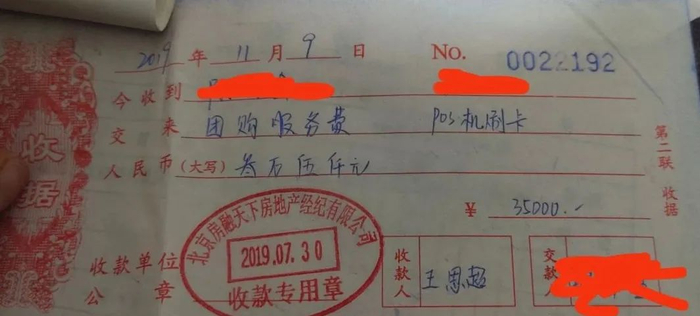 2019 年 11 月 9 日 No. 0022192
今收到
交来 团购服务费 POS机刷卡
人民币(大写) 叁万伍仟元
¥ 35000.-
收款单位公章
收款人 王思超
交款人
第二联 收据
收据
北京房融天下房地产经纪有限公司
2019.07.30
收款专用章